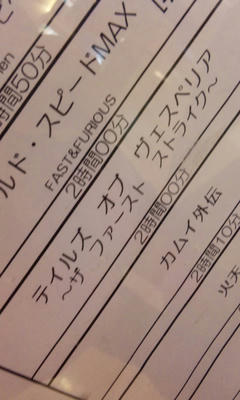 間50分
ルド・スピードMAX
FAST&FURIOUS
2時間00分
テイルズ オブ ヴェスペリア
〜ザ ファースト ストライク〜
2時間00分
カムイ外伝
2時間10分
火天